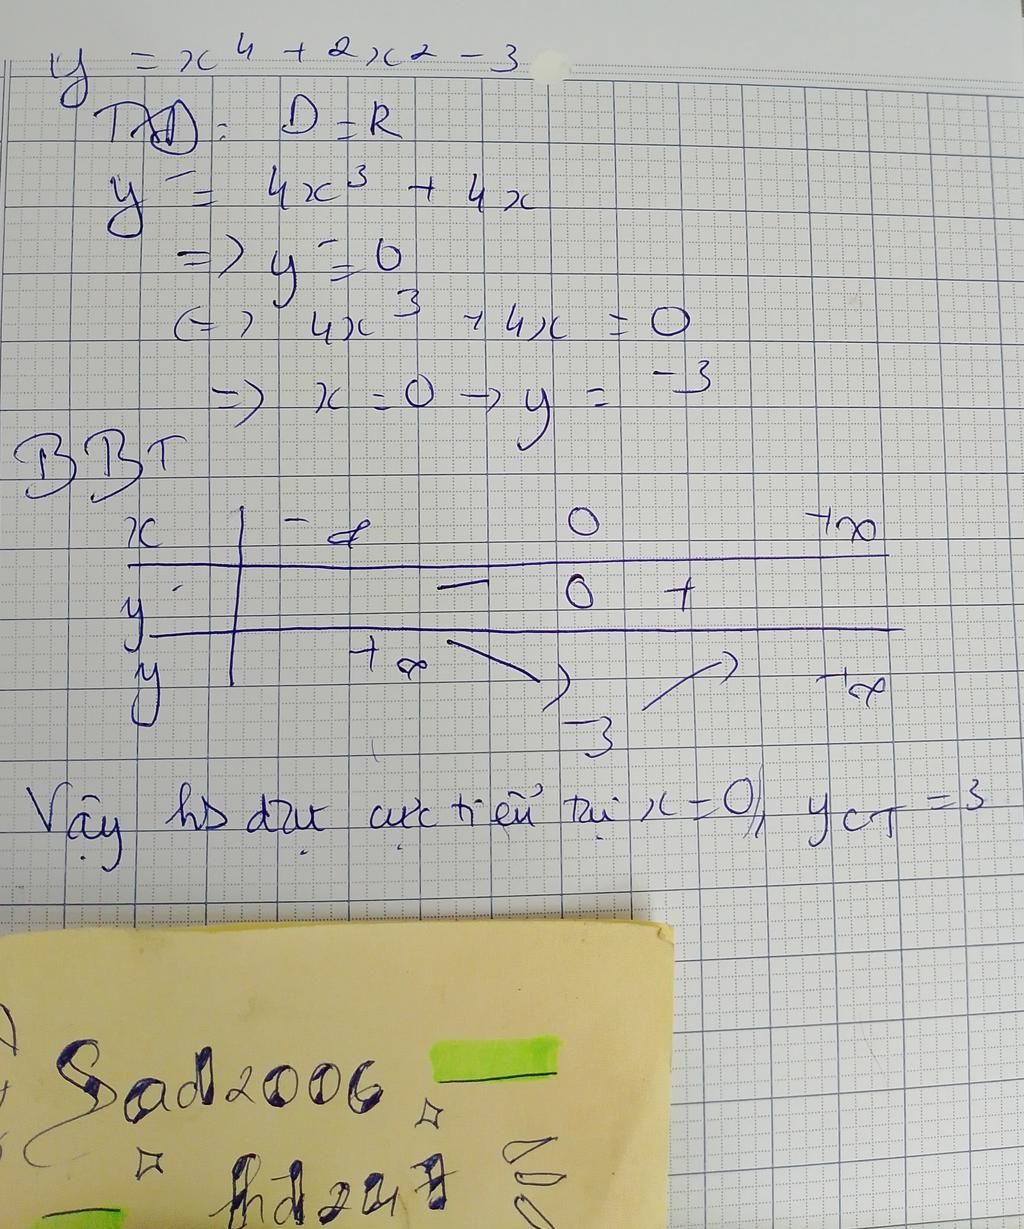 y = x⁴ + 2x² - 3
TXD: D = R
y' = 4x³ + 4x
=> y' = 0
<=> 4x³ + 4x = 0
=> x = 0 → y = -3
BBT
x -∞ 0 +∞
y' - 0 +
y +∞ -3 +∞
Vậy hs đạt cực tiểu tại x = 0, yCT = 3
Sad2006
hd247